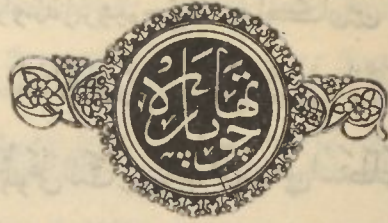 چوتھا پارہ